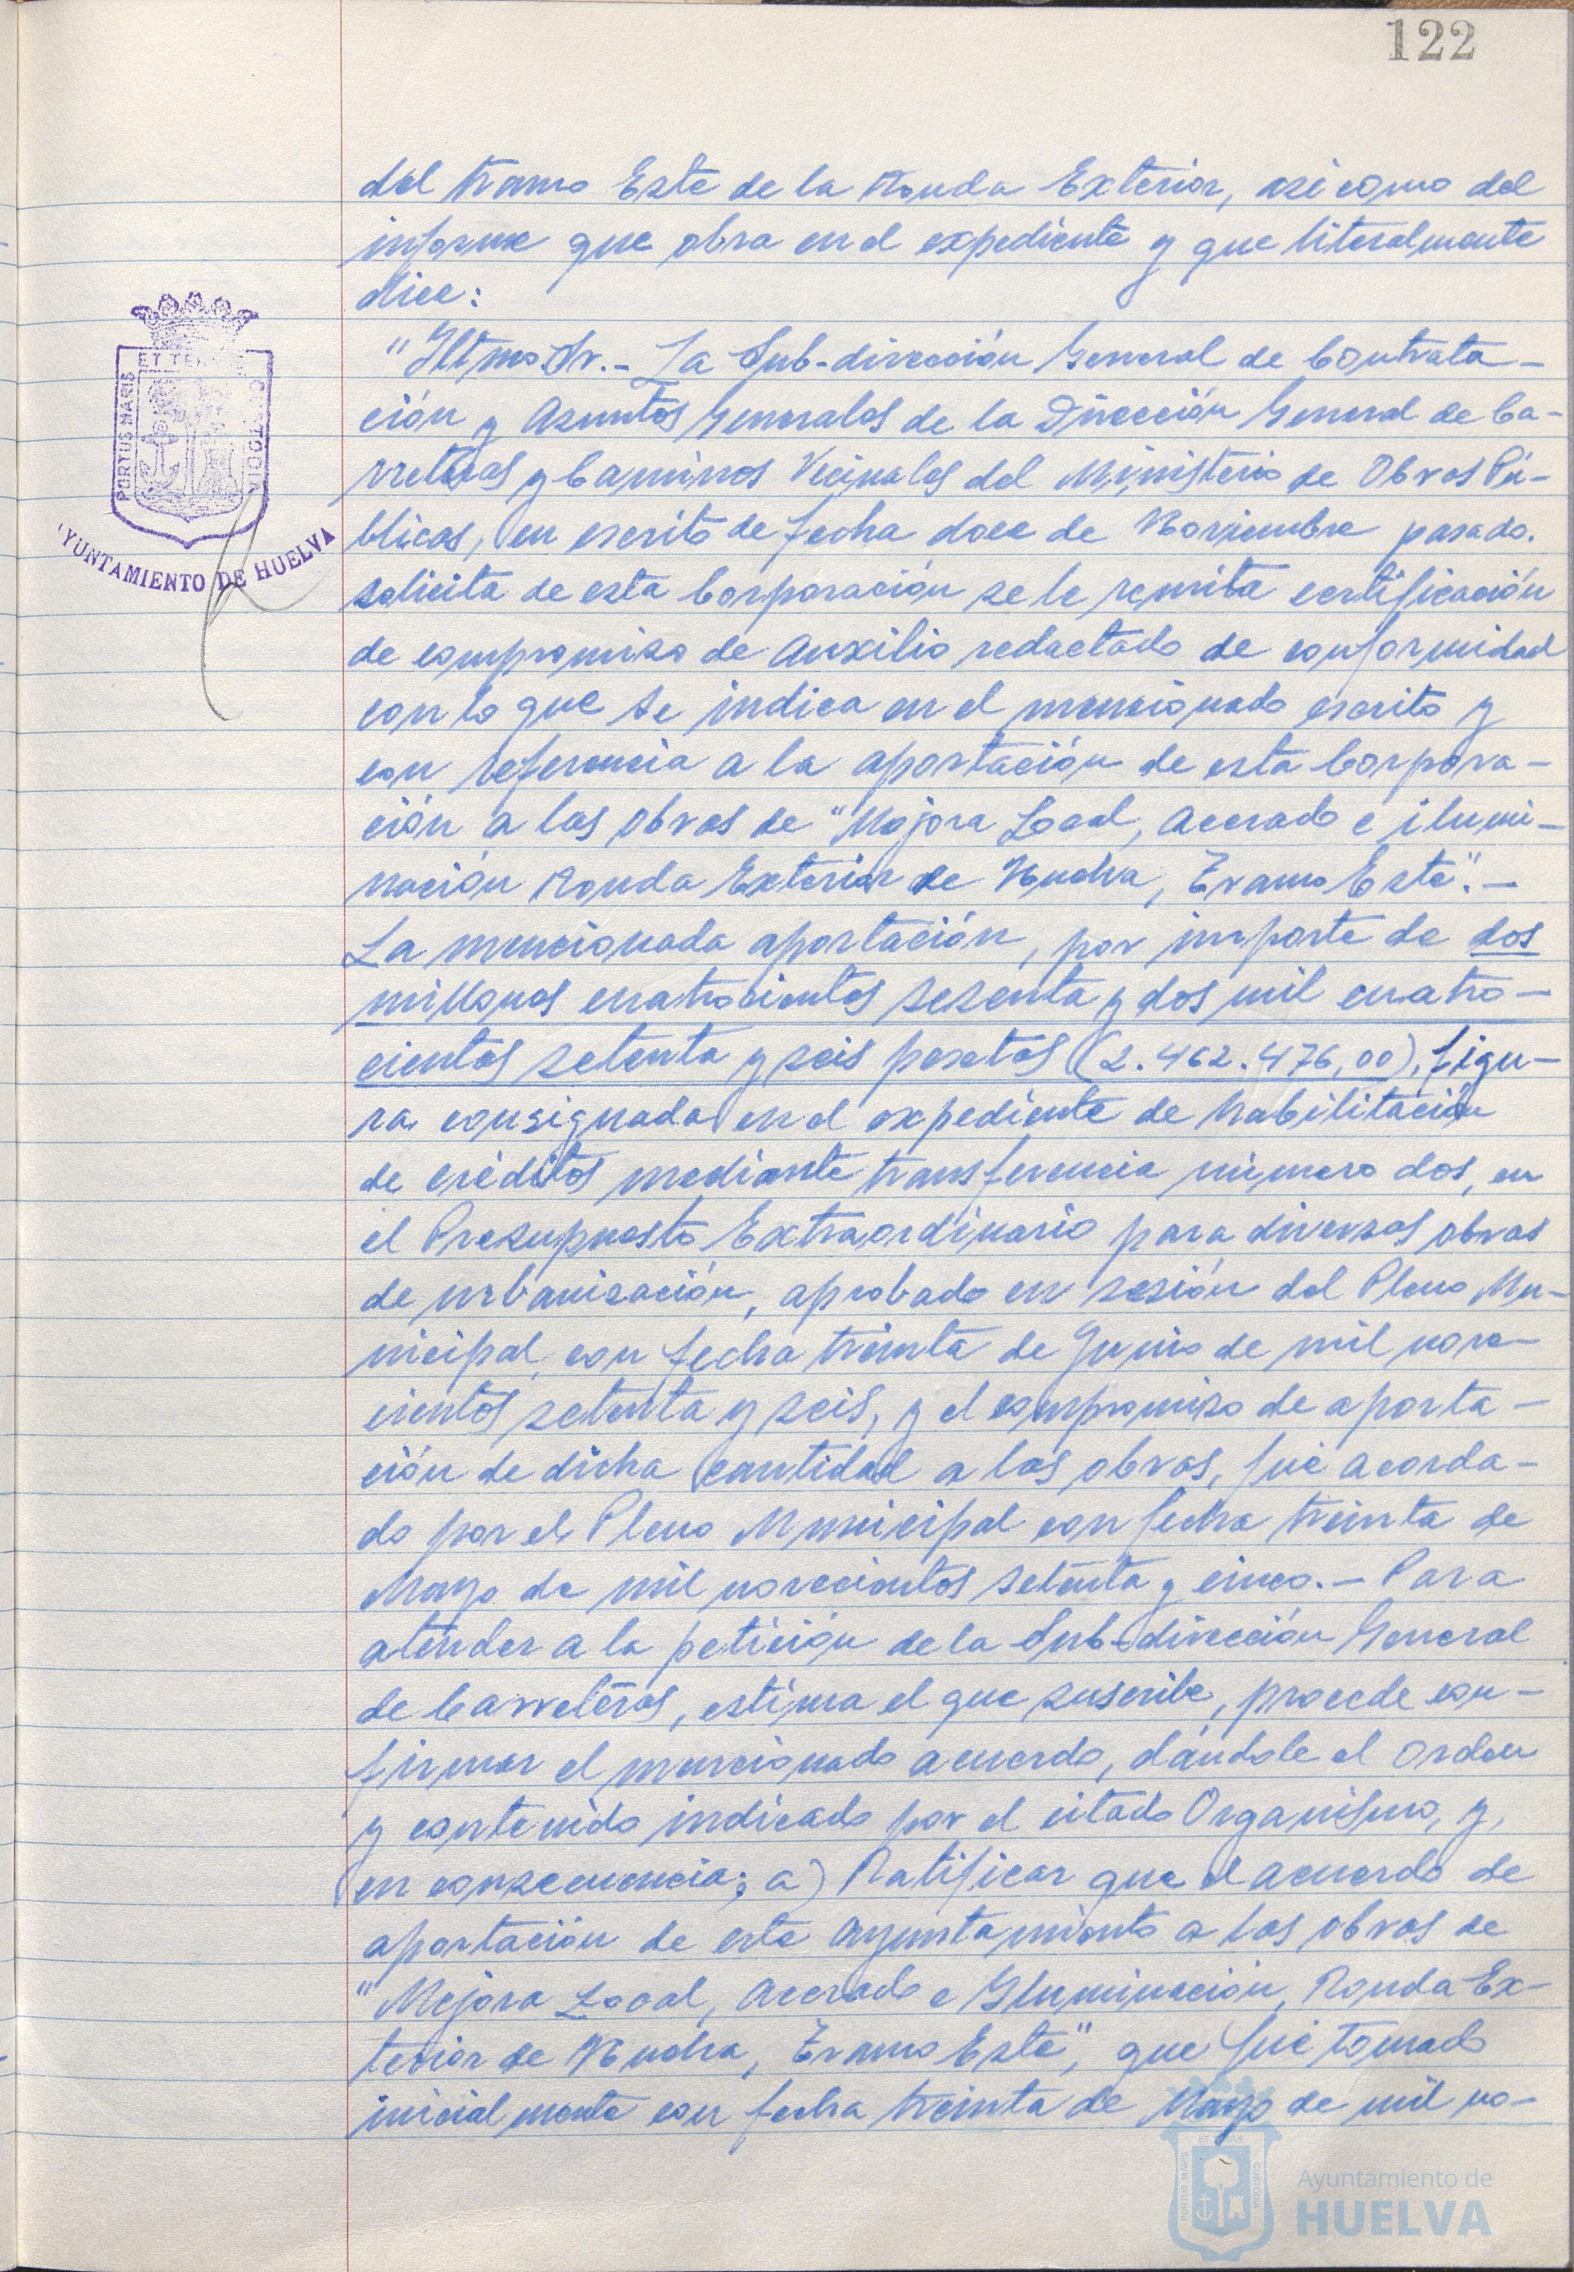 122
del tramo Este de la Ronda Exterior, asi como del
informe que obra en el expediente y que literalmente
dice:
"Iltmo. Sr.- La Sub-dirección General de Contrata-
ción y Asuntos Generales de la Dirección General de Ca-
rreteras y Caminos Vecinales del Ministerio de Obras Pú-
blicas, en escrito de fecha doce de Noviembre pasado.
solicita de esta Corporación se le remita certificación
de compromiso de Auxilio redactado de conformidad
con lo que se indica en el mencionado escrito y
con referencia a la aportación de esta Corpora-
ción a las obras de "Mejora Local, Acerado e ilumi-
nación Ronda Exterior de Huelva, Tramo Este".-
La mencionada aportación, por importe de dos
millones cuatrocientos sesenta y dos mil cuatro-
cientos setenta y seis pesetas (2.462.476,00), figu-
ra consignada en el expediente de habilitación
de créditos mediante transferencia número dos, en
el Presupuesto Extraordinario para diversas obras
de urbanización, aprobado en sesión del Pleno Mu-
nicipal, con fecha treinta de Junio de mil nove-
cientos setenta y seis, y el compromiso de aporta-
ción de dicha cantidad a las obras, fué acorda-
do por el Pleno Municipal con fecha treinta de
Mayo de mil novecientos setenta y cinco.- Para
atender a la petición de la Sub-dirección General
de Carreteras, estima el que suscribe, procede con-
firmar el mencionado acuerdo, dándole el orden
y contenido indicado por el citado Organismo, y,
en consecuencia; a) Ratificar que el acuerdo de
aportación de este Ayuntamiento a las obras de
"Mejora Local, Acerado e Iluminación, Ronda Ex-
terior de Huelva, Tramo Este", que fué tomado
inicialmente con fecha treinta de Mayo de mil no-
PORTUS MARIS
ET TERRAE
CUSTODIA
AYUNTAMIENTO DE HUELVA
Ayuntamiento de
HUELVA